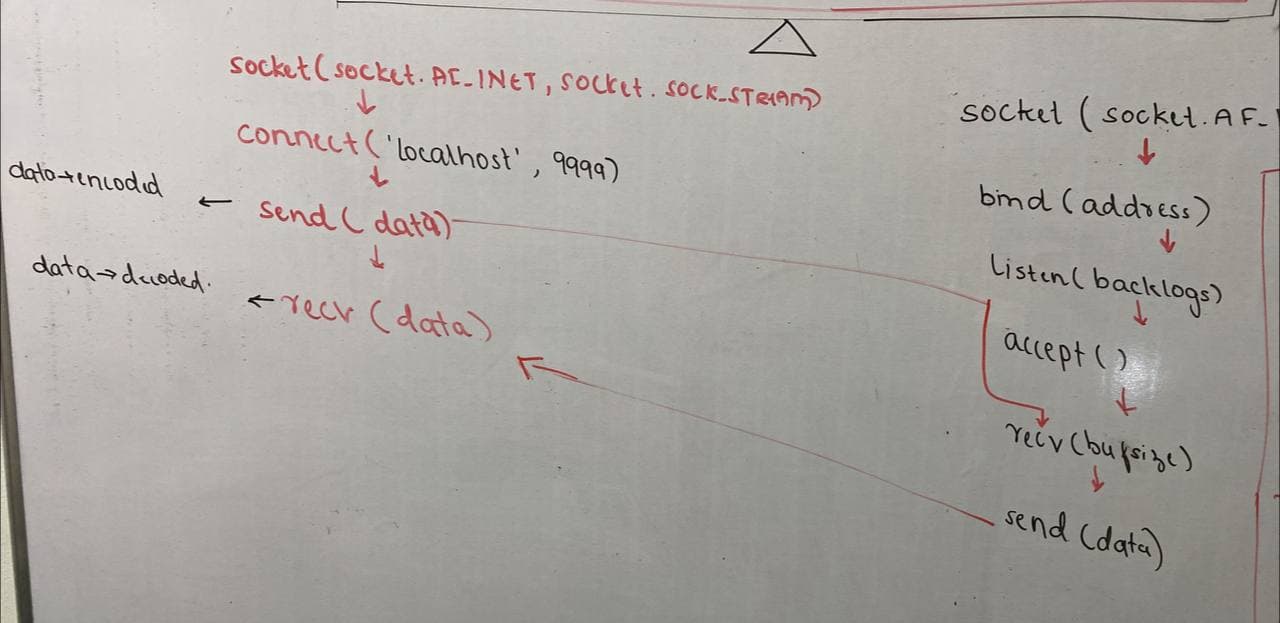 socket(socket.AF_INET, socket.SOCK_STREAM)
↓
connect('localhost', 9999)
↓
data→encoded ← send(data)
↓
data→decoded. ← recv(data)
socket (socket.AF_
↓
bind (address)
↓
listen(backlogs)
↓
accept()
↓
recv(bufsize)
↓
send (data)